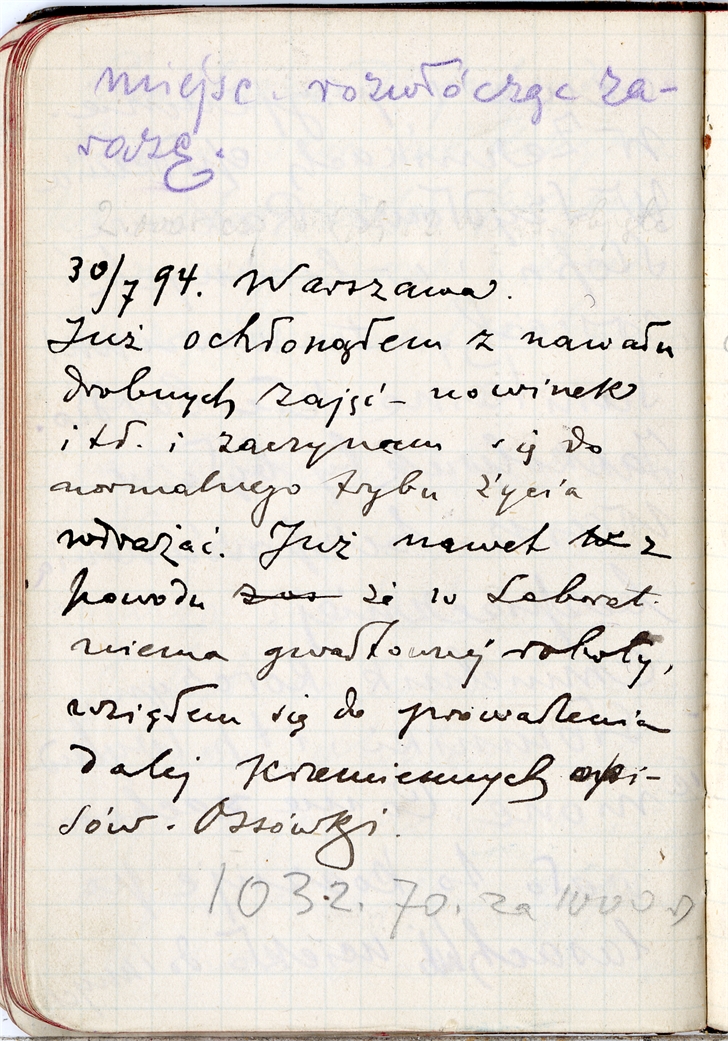 miejsc. rozwłócząc za-
razę.
30/7 94. Warszawa.
Już ochłonąłem z nawału
drobnych zajęć - nowinek
i td. i zaczynam się do
normalnego trybu życia
wdrażać. Już nawet z
powodu że w Laborat.
niema gwałtownej roboty,
wziąłem się do prowadzenia
dalej krzemiennych opi-
sów. Ossówki.
1032.70. za 1000